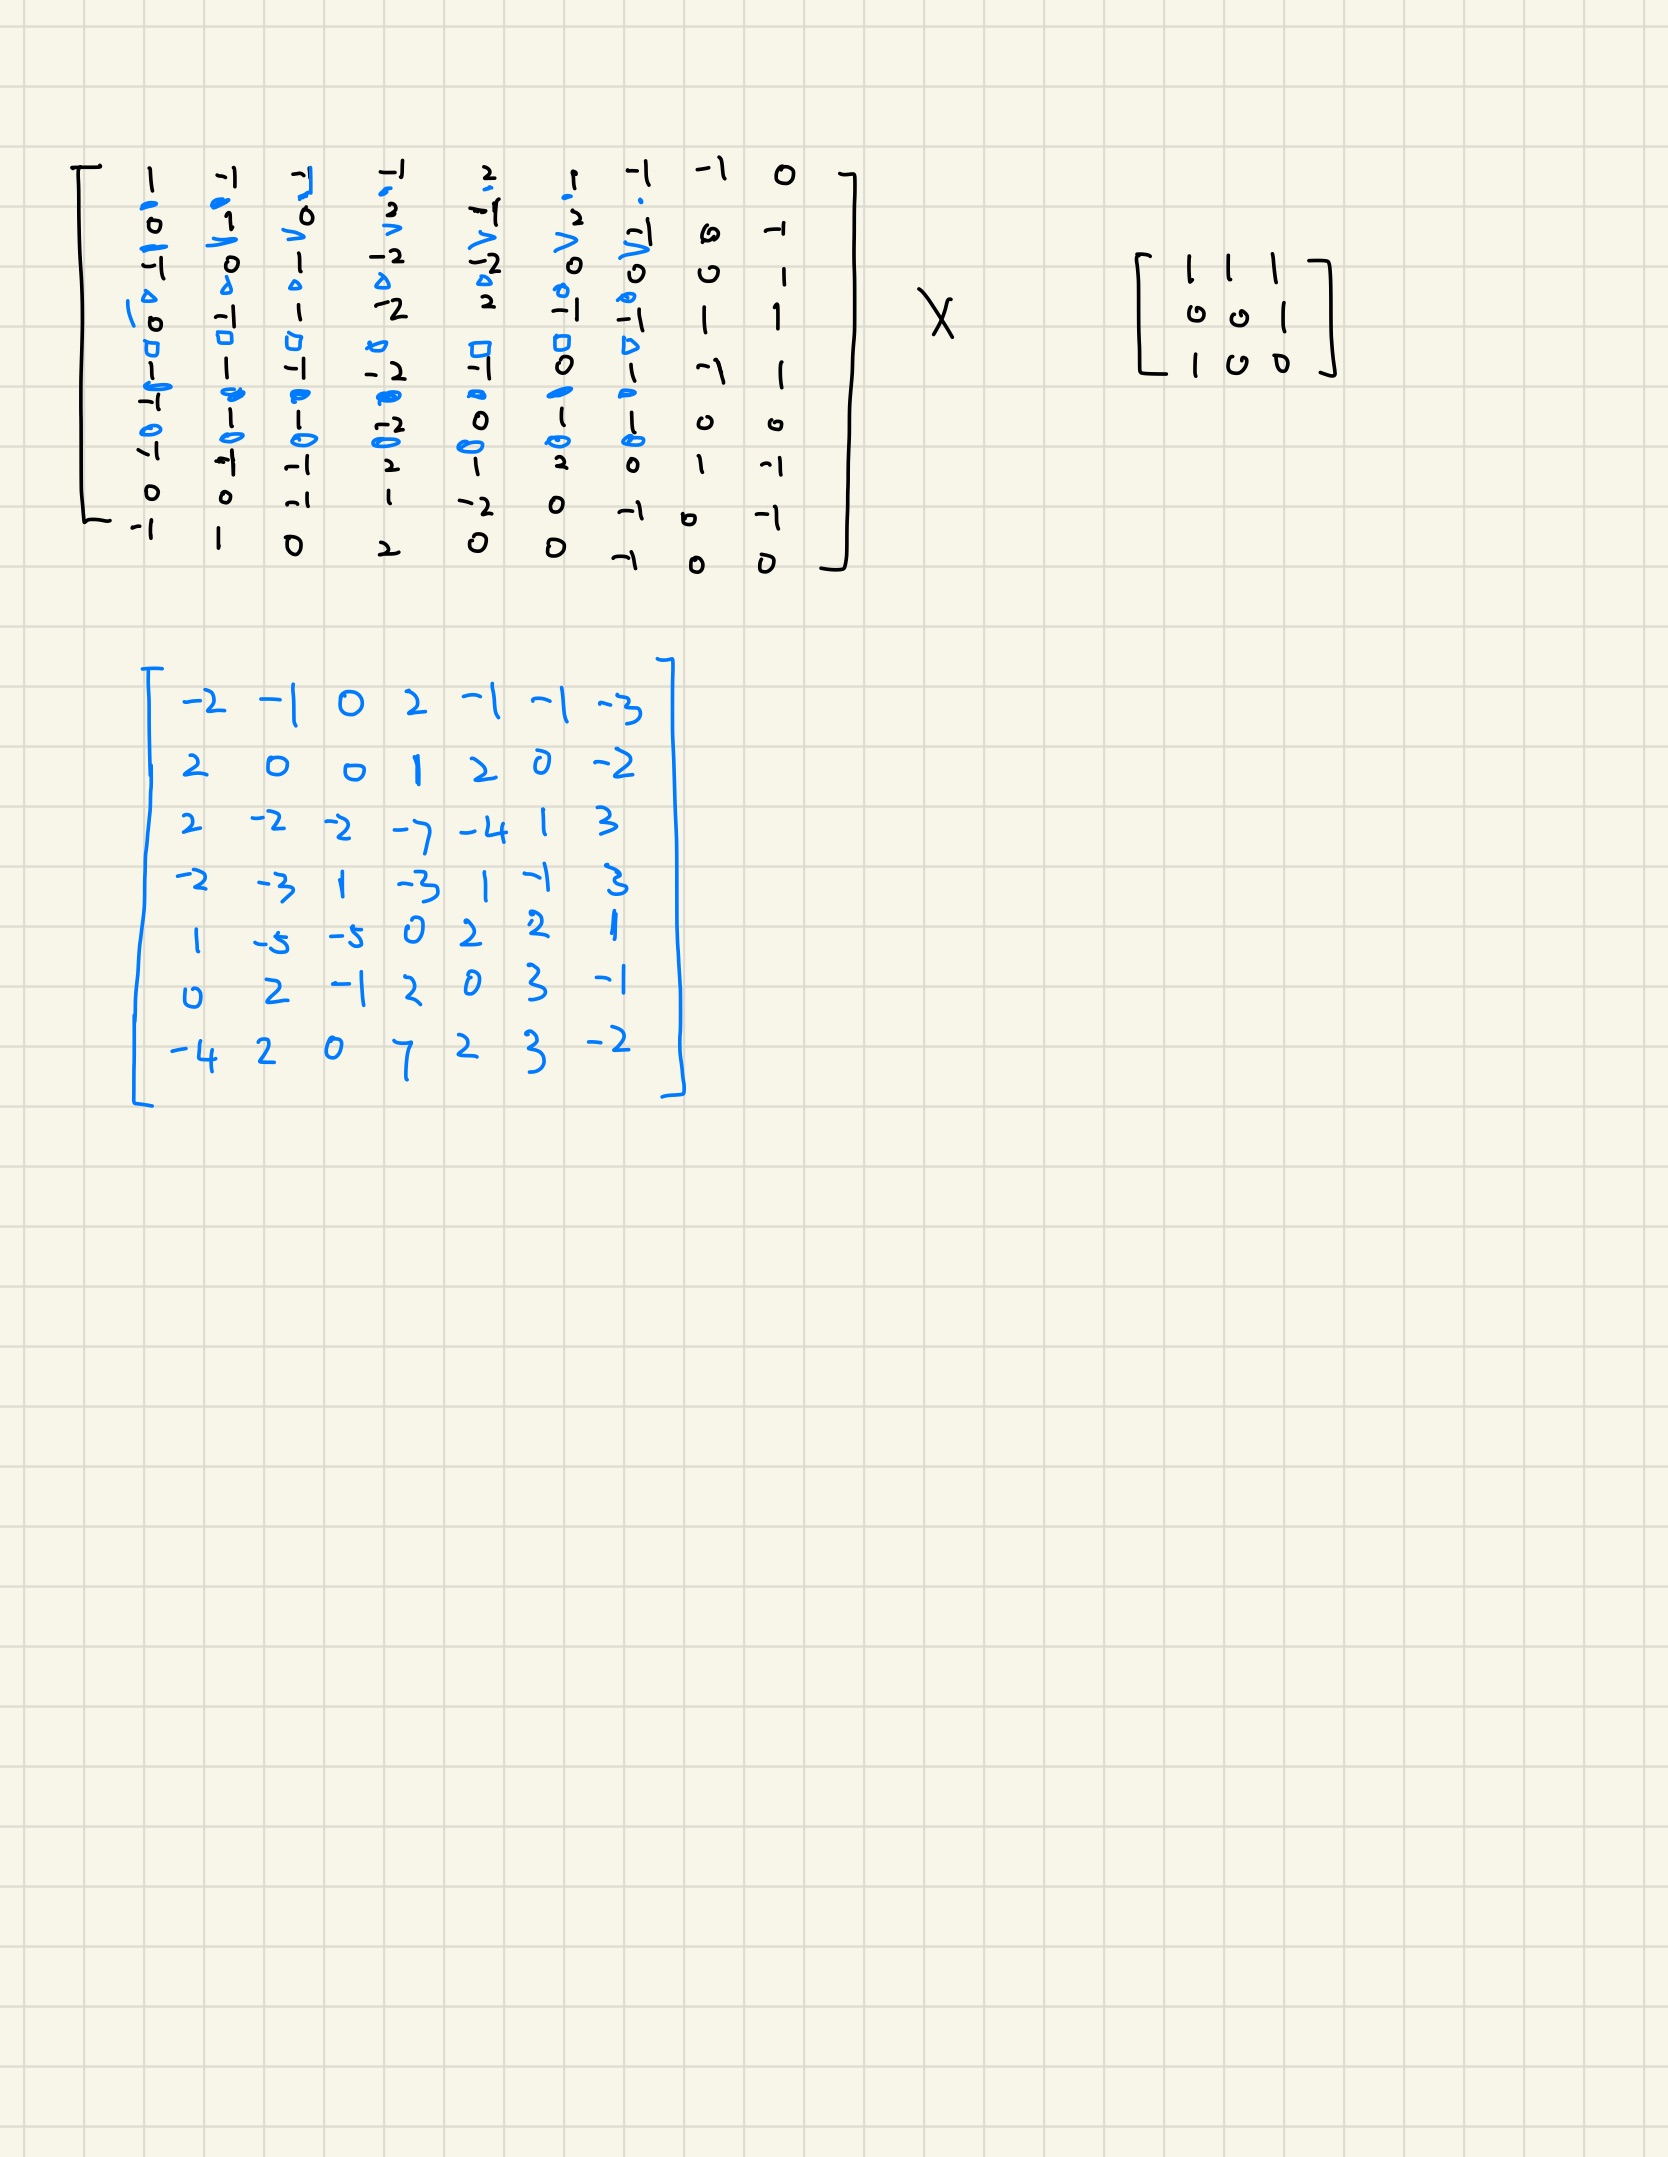 1 -1 -1 -1 2 1 -1 -1 0
0 1 0 2 -1 2 -1 0 -1
-1 0 1 -2 -2 0 0 0 1
0 -1 1 -2 2 -1 -1 1 1
1 1 -1 -2 -1 0 1 -1 1
-1 1 1 -2 0 1 1 0 0
-1 -1 -1 2 1 2 0 1 -1
0 0 -1 1 -2 0 -1 0 -1
-1 1 0 2 0 0 -1 0 0
X
1 1 1
0 0 1
1 0 0
-2 -1 0 2 -1 -1 -3
2 0 0 1 2 0 -2
2 -2 -2 -7 -4 1 3
-2 -3 1 -3 1 -1 3
1 -5 -5 0 2 2 1
0 2 -1 2 0 3 -1
-4 2 0 7 2 3 -2